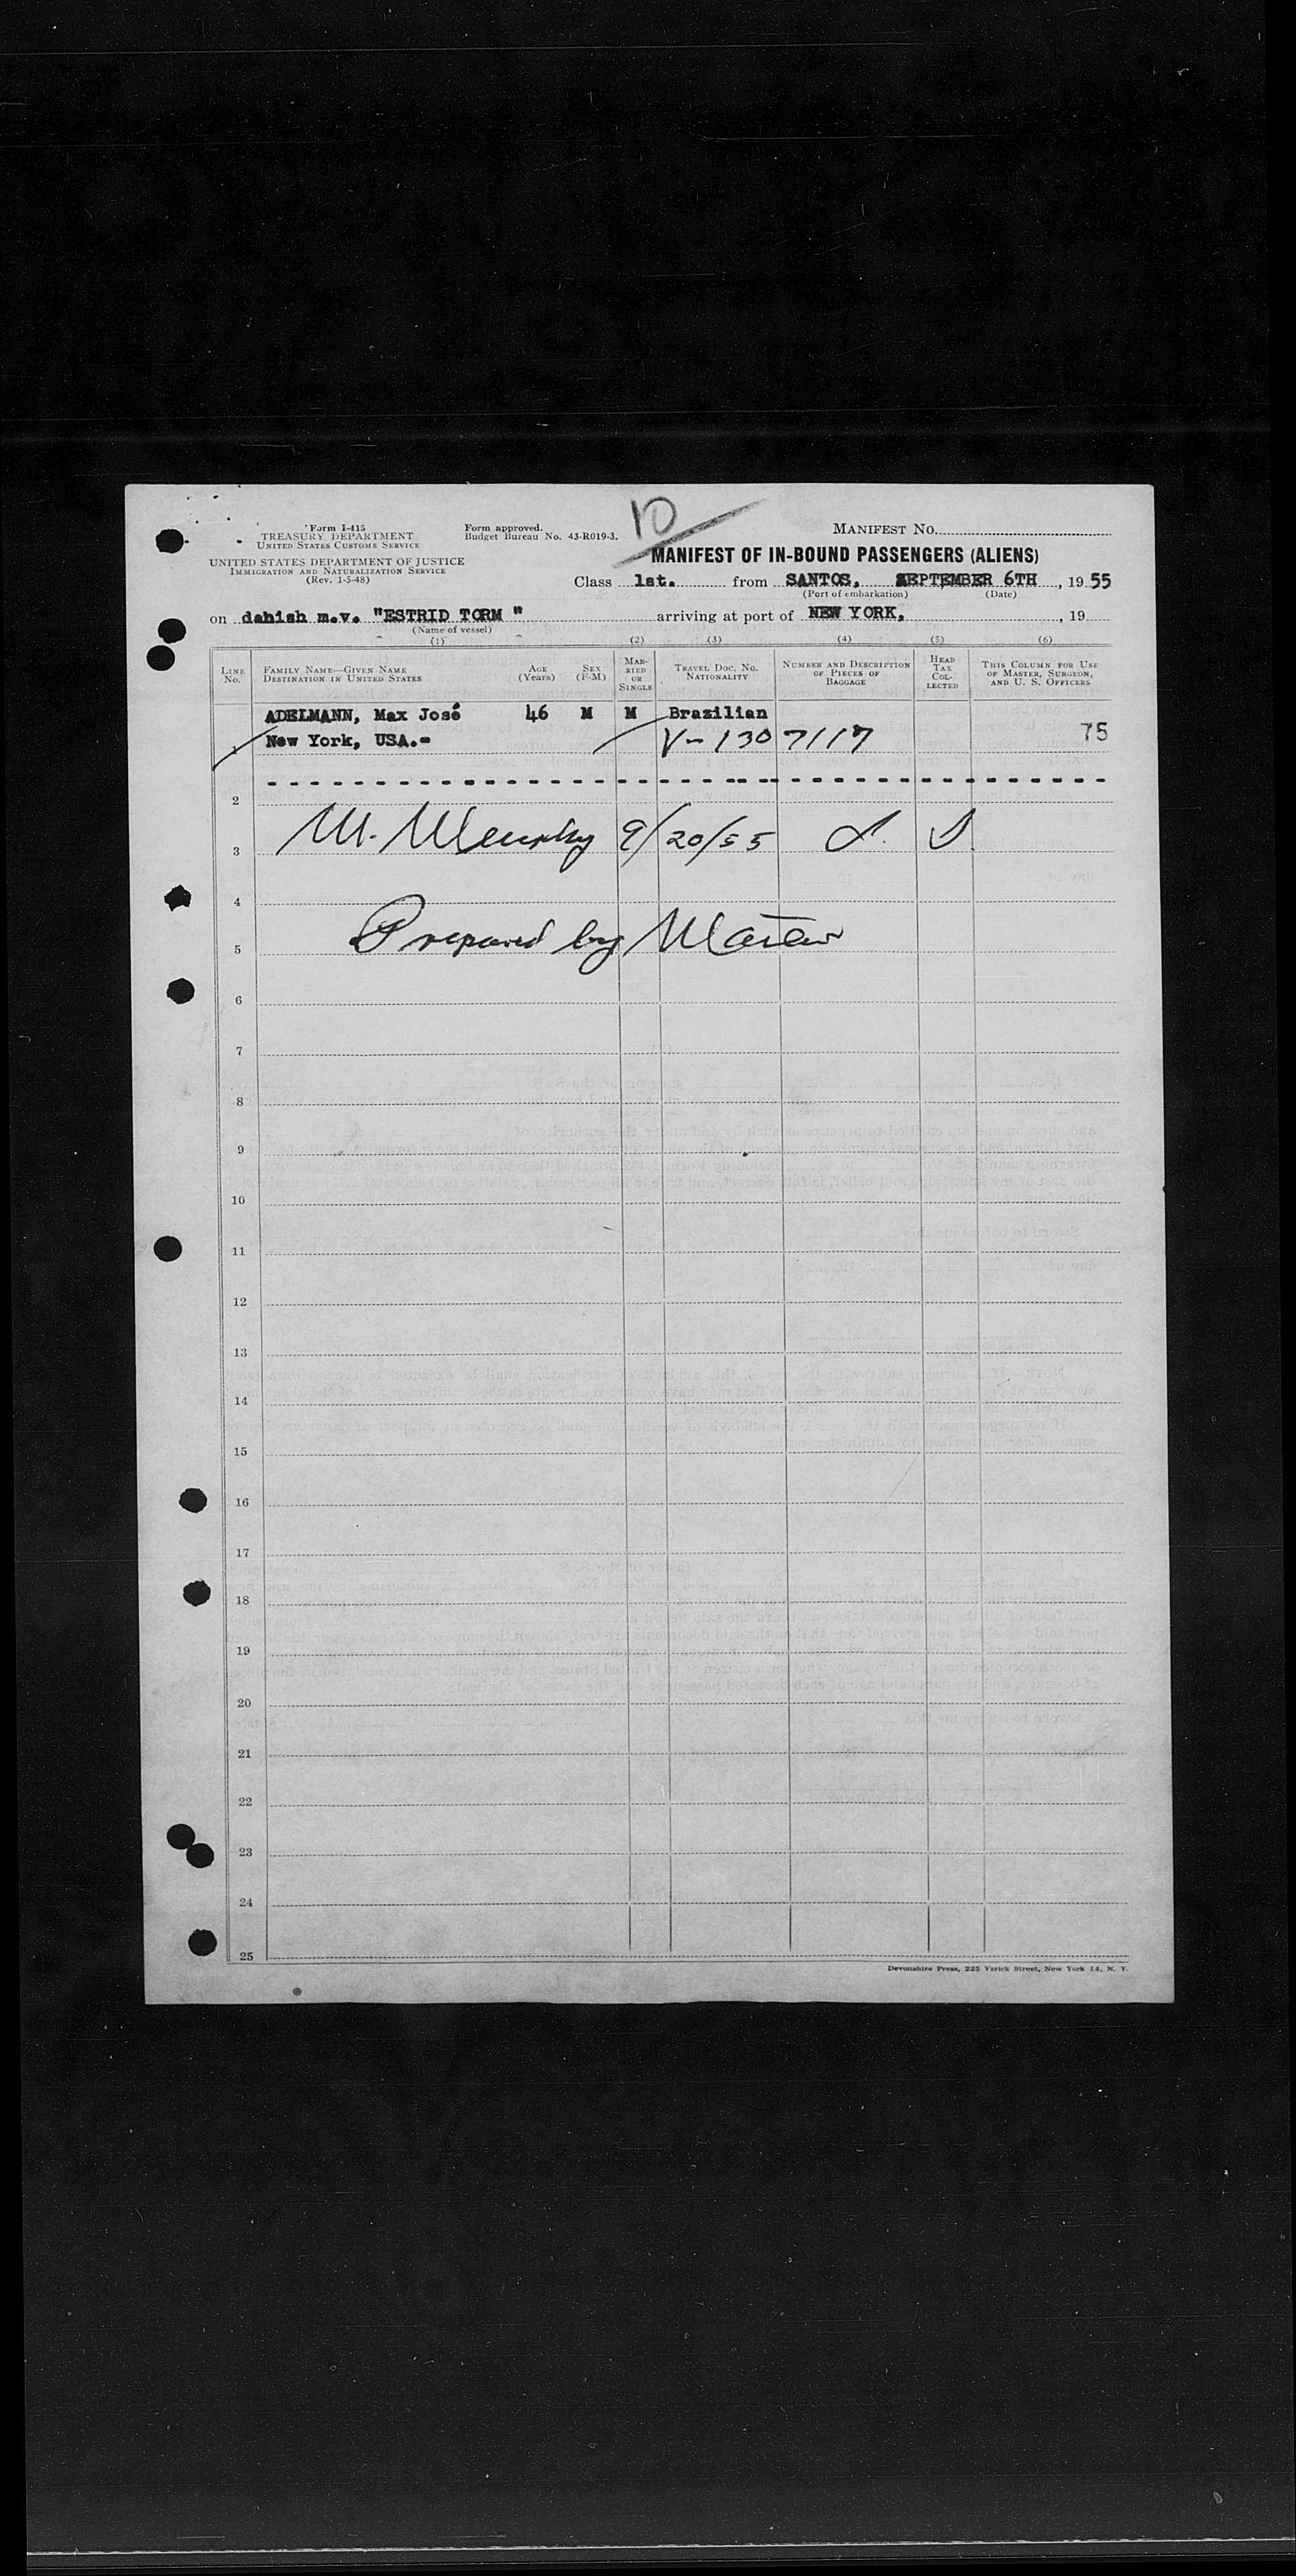 10
Form I-415
TREASURY DEPARTMENT
UNITED STATES CUSTOMS SERVICE
UNITED STATES DEPARTMENT OF JUSTICE
IMMIGRATION AND NATURALIZATION SERVICE
(Rev. 1-5-48)
Form approved.
Budget Bureau No. 43-R019-3.
MANIFEST NO.
MANIFEST OF IN-BOUND PASSENGERS (ALIENS)
Class 1st. from SANTOS, SEPTEMBER 6TH, 1955
(Port of embarkation) (Date)
on danish m.v. "ESTRID TORM " arriving at port of NEW YORK, , 19
(Name of vessel)
(1) (2) (3) (4) (5) (6)
LINE NO.
FAMILY NAME—GIVEN NAME
DESTINATION IN UNITED STATES
AGE (Years)
SEX (F-M)
MARRIED OR SINGLE
TRAVEL DOC. NO.
NATIONALITY
NUMBER AND DESCRIPTION OF PIECES OF BAGGAGE
HEAD TAX COLLECTED
THIS COLUMN FOR USE OF MASTER, SURGEON, AND U. S. OFFICERS
ADELMANN, Max José 46 M M Brazilian
1 New York, USA.- V-1307117 75
2
3 M. Murphy 9/20/55
4
5 Prepared by Master
6
7
8
9
10
11
12
13
14
15
16
17
18
19
20
21
22
23
24
25
Devonshire Press, 225 Varick Street, New York 14, N. Y.